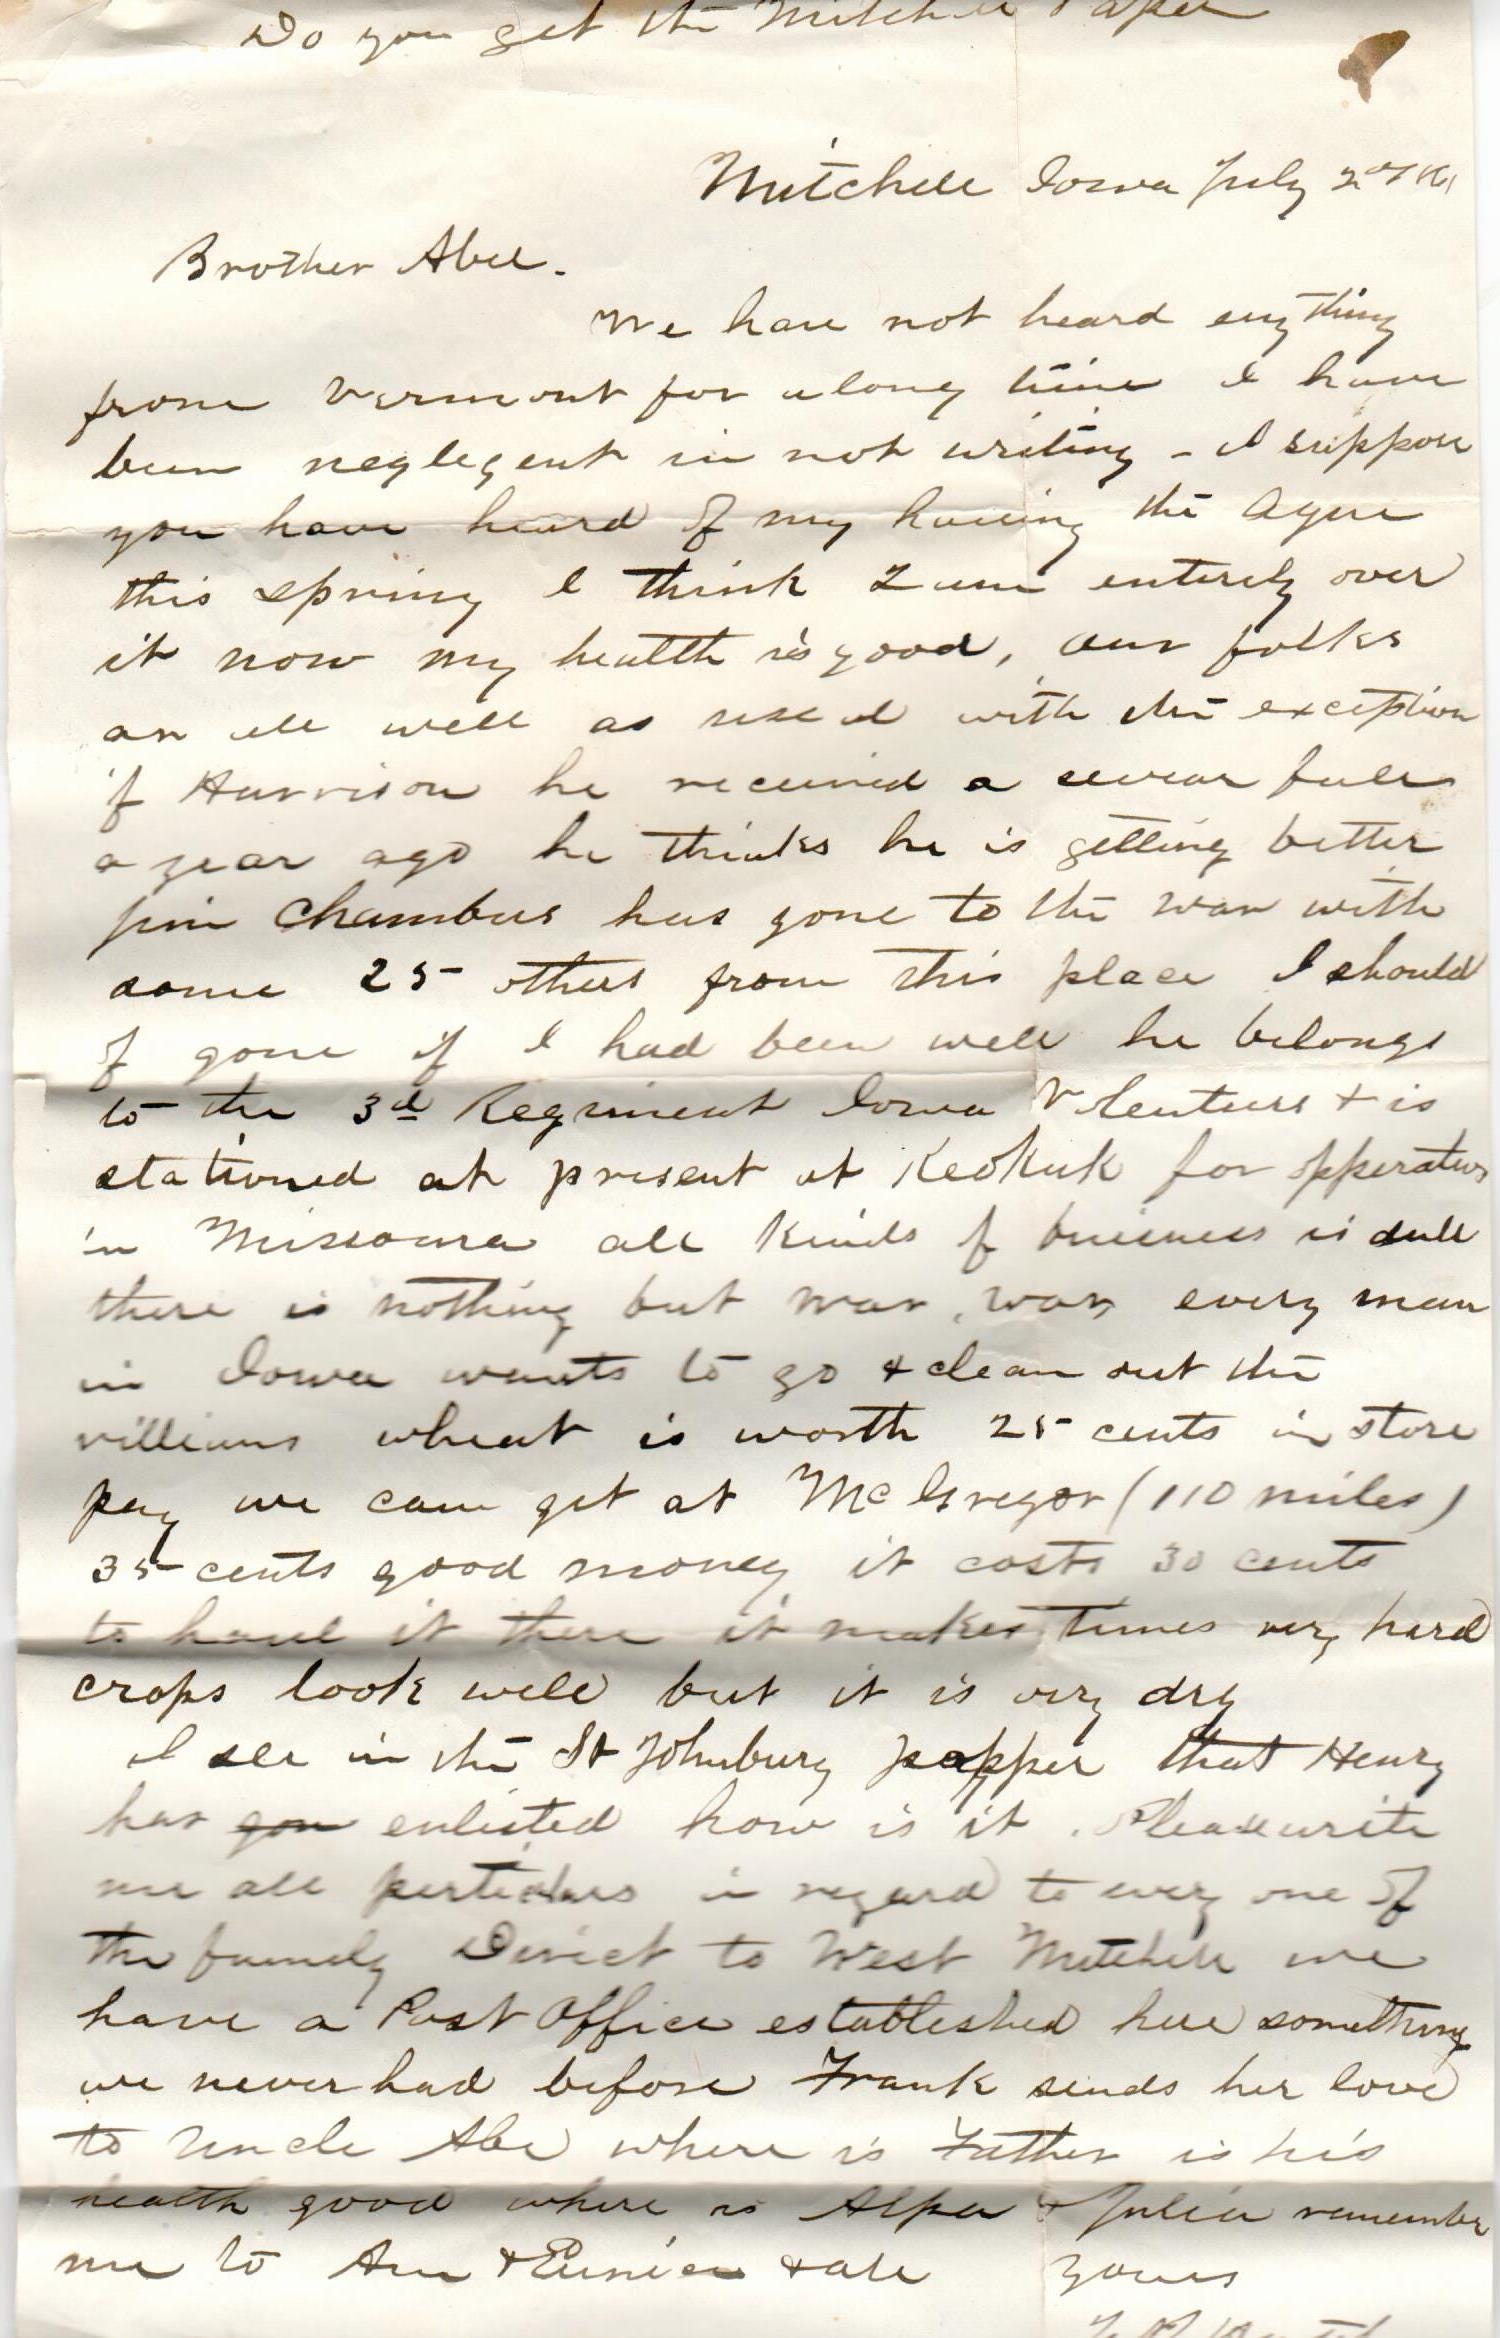 Do you get the Mitchell Paper
Mitchell Iowa July 2nd 1861
Brother Abel.
We have not heard enything
from Vermont for a long time I have
been neglegent in not writing - I suppose
you have heard of my having the Ague
this spring I think I am entirely over
it now my health is good, our folks
ar all well as useul with the exception
of Harrison he received a sevear fall
a year ago he thinks he is getting better
Jim Chambers has gone to the war with
some 25 others from this place I should
of gone if I had been well he belongs
to the 3d Regiment Iowa Volenteers + is
stationed at present at Keokuk for opperations
in Missoura all kinds of buisness is dull
there is nothing but war, war, every man
in Iowa wants to go + clean out the
villians wheat is worth 25 cents in store
pay we can get at McGregor (110 miles)
35 cents good money it costs 30 cents
to haul it there it makes times very hard
crops look well but it is very dry
I see in the St Johnbury papper that Henry
has gon enlisted how is it. Please write
me all perticulars in regard to every one of
the family Direct to West Mitchell we
have a Post Office estableshed here something
we never had before Frank sends her love
to Uncle Abe where is Father is his
health good where is Alpa + Julia remember
me to Ann + Eunice + all
yours